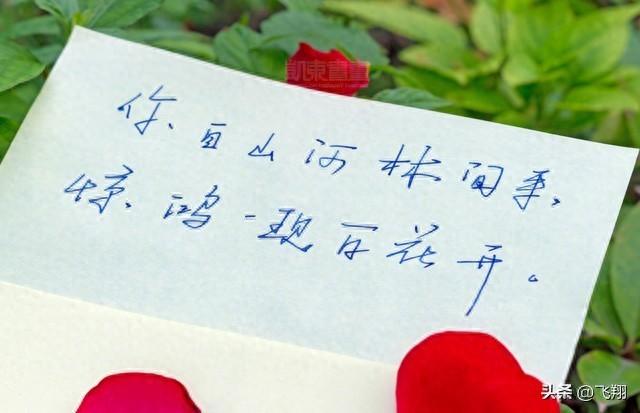 你自山河林间来,
惊鸿一现百花开。
头条 @飞翔